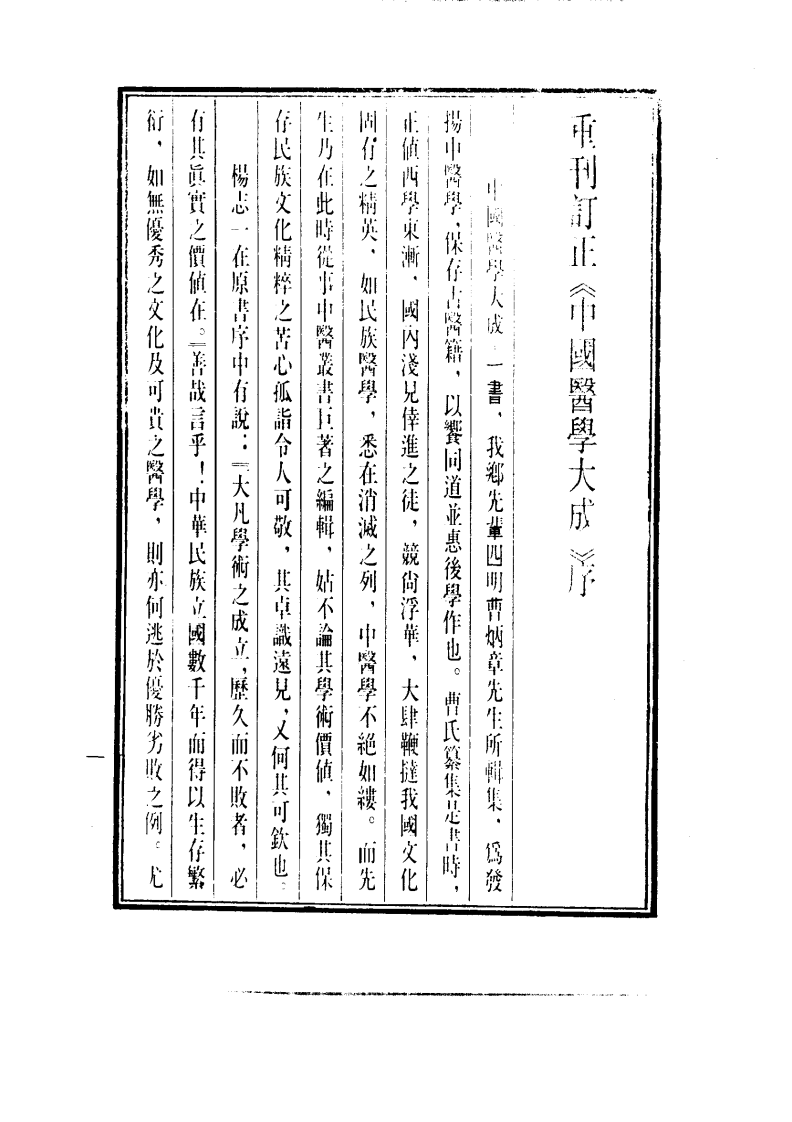 重刊訂正《中國醫學大成》序
中國醫學大成一書，我鄉先輩四明曹炳章先生所輯集，爲發
揚中醫學，保存古醫籍，以饗同道並惠後學作也。曹氏纂集是書時，
正値西學東漸，國內淺見倖進之徒，競尙浮華，大肆鞭撻我國文化
固有之精英，如民族醫學，悉在消滅之列，中醫學不絕如縷。而先
生乃在此時從事中醫叢書巨著之編輯，姑不論其學術價値，獨其保
存民族文化精粹之苦心孤詣令人可敬，其卓識遠見，又何其可欽也。
楊志一在原書序中有說：『大凡學術之成立，歷久而不敗者，必
有其眞實之價値在。』善哉言乎！中華民族立國數千年而得以生存繁
衍，如無優秀之文化及可貴之醫學，則亦何逃於優勝劣敗之例。尤
一